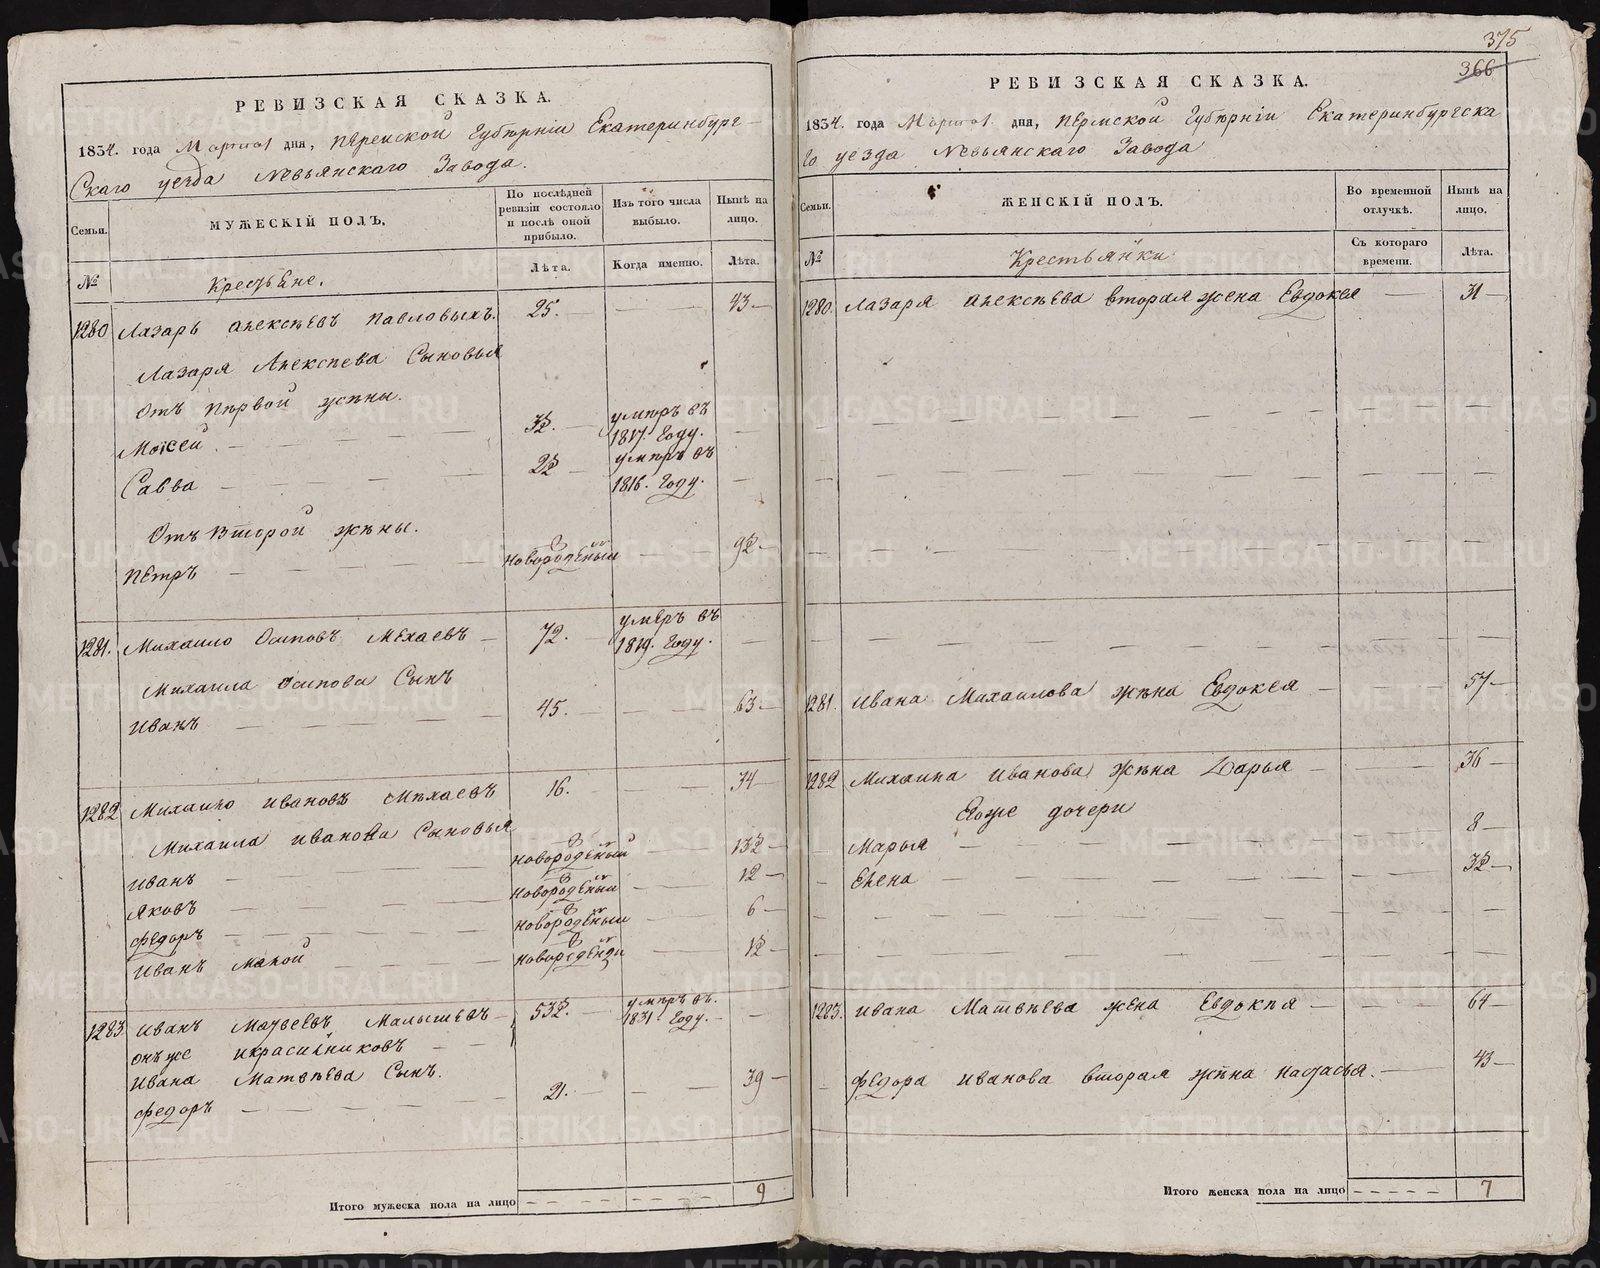 РЕВИЗСКАЯ СКАЗКА.
1834. года Марта дня, Пермской Губѣрнiи Екатеринбург-
скаго уезда Невьянскаго Завода.
Семьи.
МУЖЕСКIЙ ПОЛЪ,
По послѣдней ревизiи состояло и послѣ оной прибыло.
Изъ того числа выбыло.
Нынѣ на лицо.
№
Крестьяне.
Лѣта.
Когда именно.
Лѣта.
1280 Лазарь Алексѣевъ Павловыхъ. 25. 43
Лазаря Алексѣева Сыновья
Отъ первой жѣны.
Моисей 3½ умиръ въ 1817. Году.
Савва 2½ умиръ въ 1816. Году.
Отъ Второй жѣны.
Пѣтръ новорожденный 9½
1281. Михаило Осиповъ Мѣхаевъ 72. умеръ въ 1819. Году.
Михаила Осипова Сынъ
Иванъ 45. 63
1282 Михаило Ивановъ Мѣхаевъ 16. 34
Михаила Иванова Сыновья
Иванъ новорожденный 13½
Яковъ новорожденный 12
Федоръ новорожденный 6
Иванъ Малой новорожденный 1½
1283 Иванъ Матвеевъ Малышевъ 53½ умиръ въ 1831 Году.
онъ же Икрасильниковъ
Ивана Матвѣева Сынъ.
Федоръ 21. 39
Итого мужеска пола на лицо 9
375
366
РЕВИЗСКАЯ СКАЗКА.
1834. года Марта дня, Пермской Губѣрнiи Екатеринбургска
го уезда Невьянскаго Завода
Семьи.
ЖЕНСКIЙ ПОЛЪ.
Во временной отлучкѣ.
Нынѣ на лицо.
№
Крестьянки
Съ котораго времени.
Лѣта.
1280. Лазаря Алексѣева вторая жена Евдокея 31
1281. Ивана Михаилова жѣна Евдокея 57
1282 Михаила Иванова жѣна Дарья 36
Егоже дочери
Марья 8
Елена 3½
1283. Ивана Матвѣева жена Евдокѣя 64
Федора Иванова вторая жѣна Настасья. 43
Итого женска пола на лицо 7
METRIKI.GASO-URAL.RU